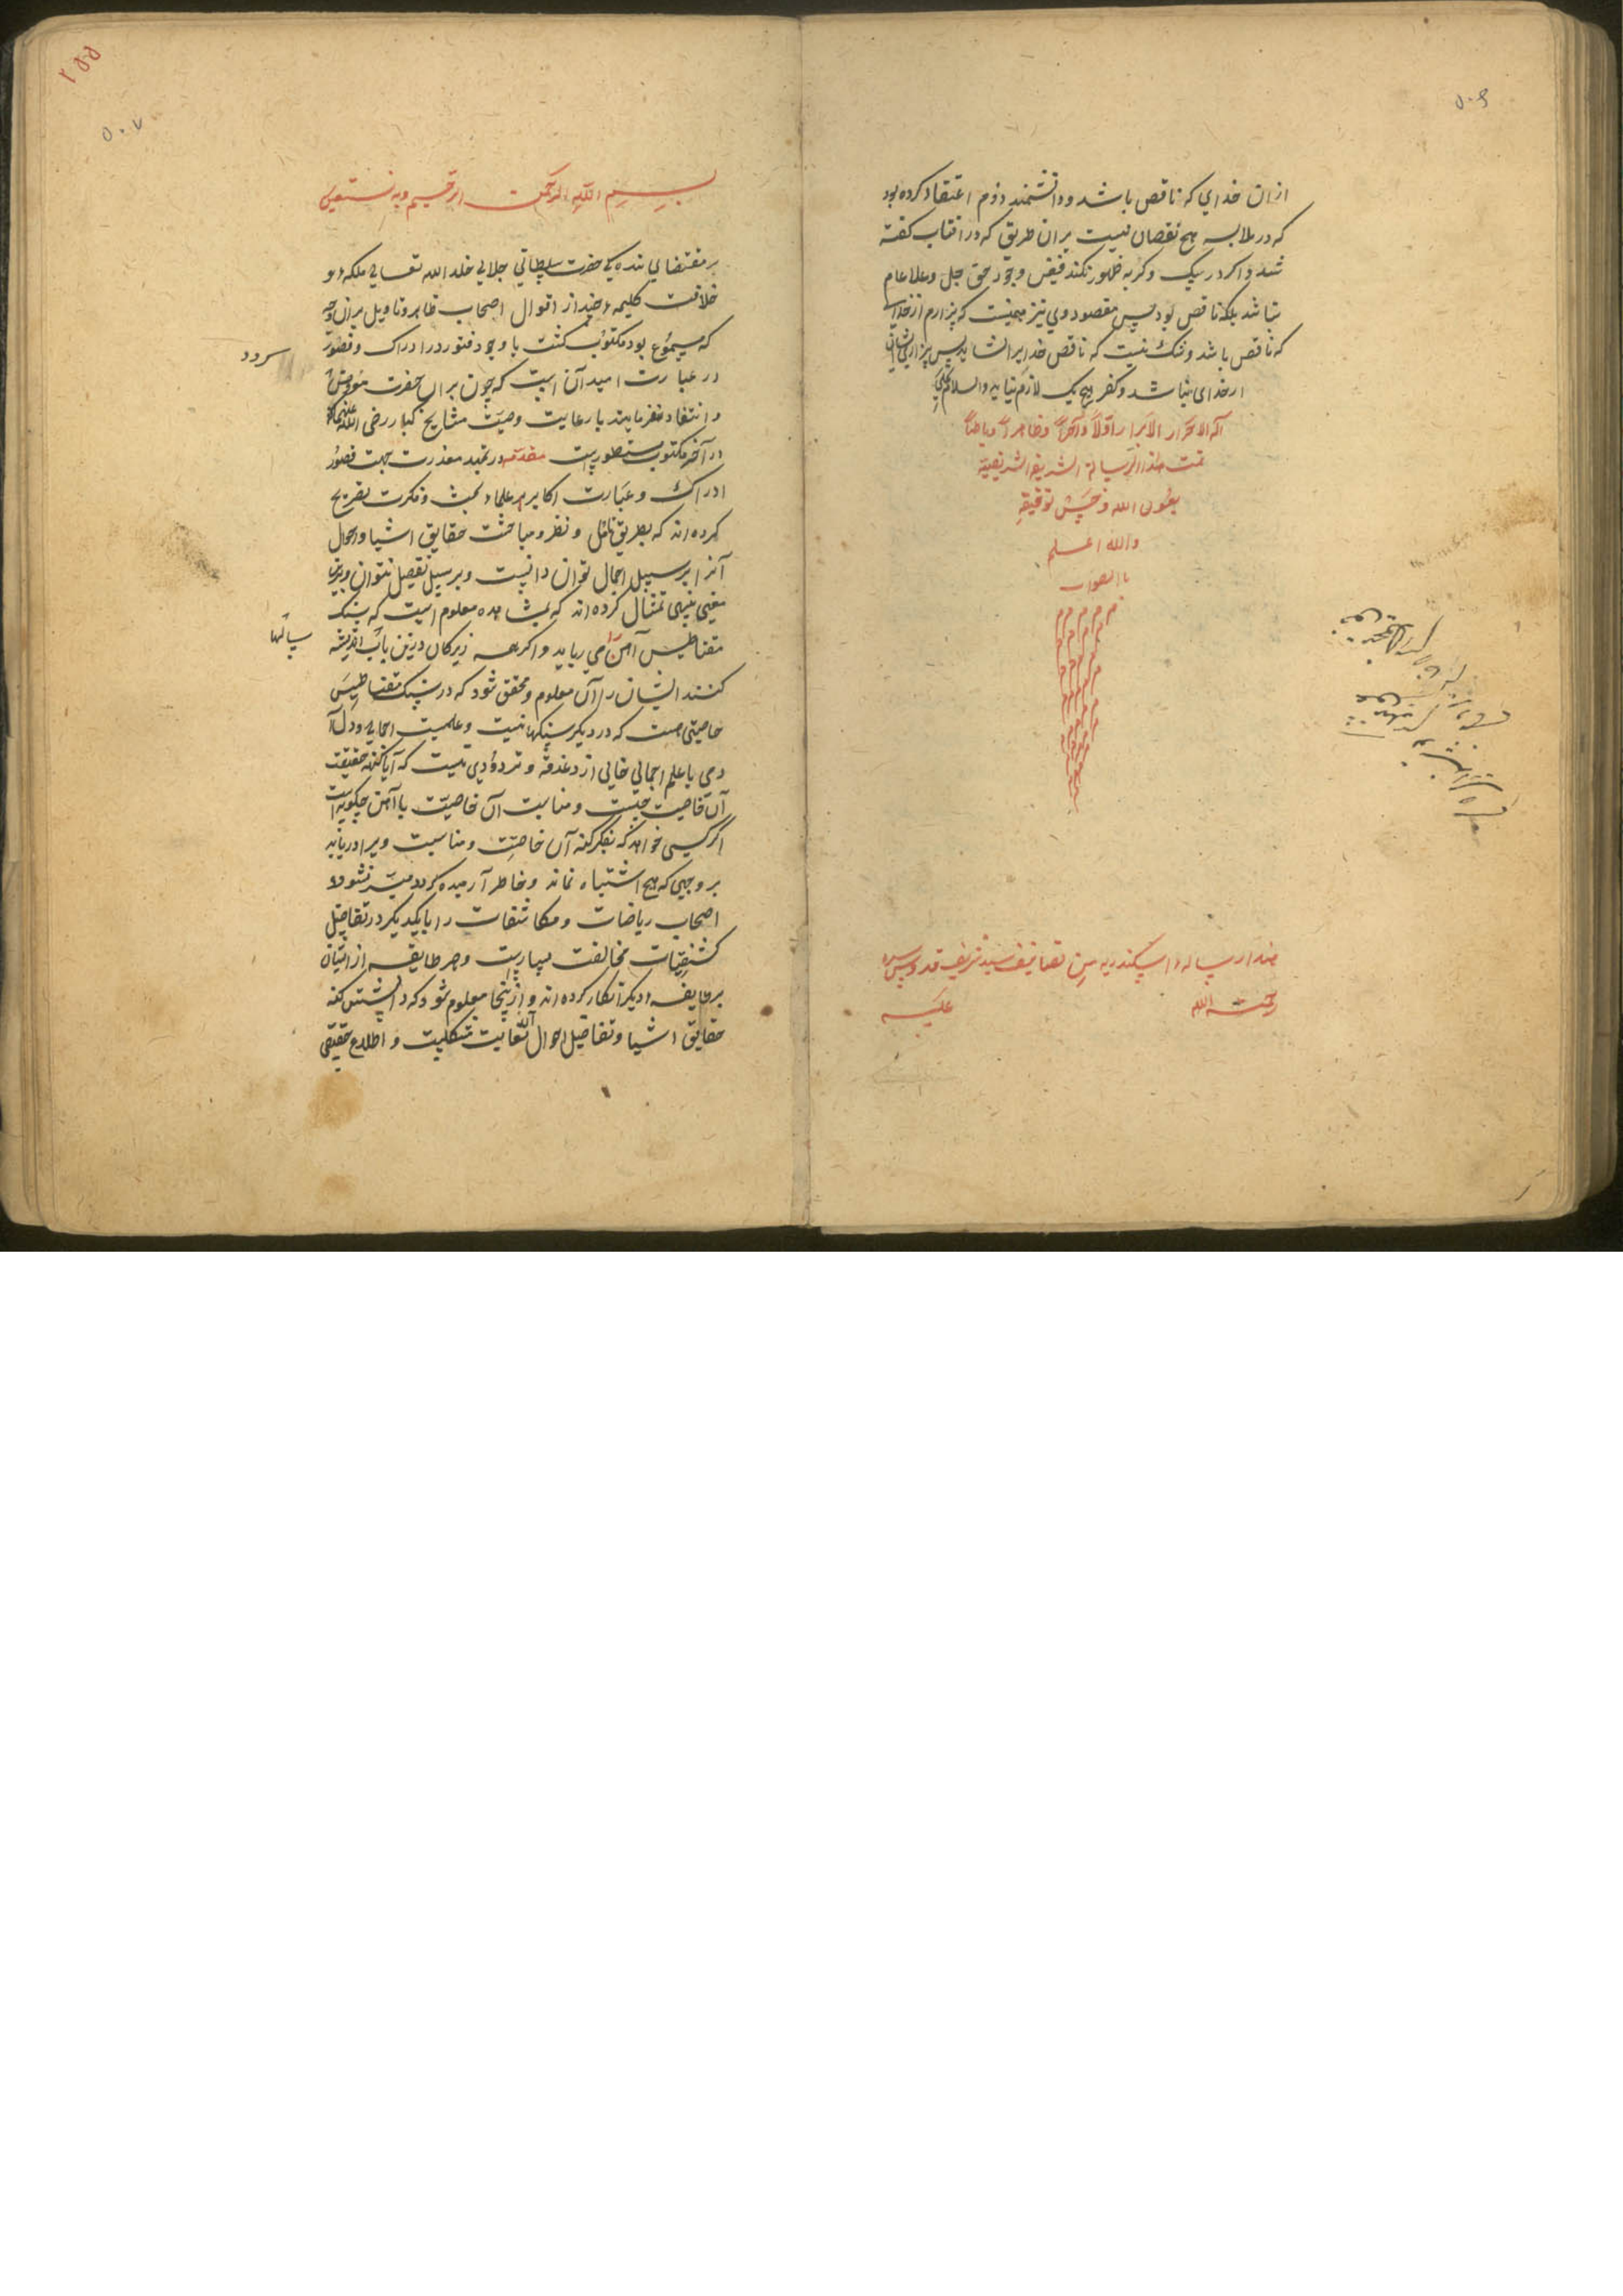 ۵۰۶
ازان خدای که ناقص باشد و دانشمند دوم اعتقاد کرده بود
که در ملابسه هیچ نقصان نیست بران طریق که در افتاب کفته
شد و اکر در یک وکربه ظهور نکند فیض وجود حق جل وعلا عام
نباشد بلکه ناقص بود پس مقصود وی نیز همینست که بیزارم از خدای
که ناقص باشد و شک نیست که ناقص خدایرا نشاید پس بیزاری ایشان
از خدای نباشد و کفر هیچ یک لازم نیاید والسلام علی
آله الاحرار الابرار اولا وآخرا وظاهرا وباطنا
تمت هذا الرسالة الشریفة الشریفیة
بعون الله وحسن توفیقه
والله اعلم
بالصواب
م م م م م
هذا رساله اسکندریه من تصانیف سید شریف قدس سره
رحمت الله علیه
۲۵۵
۵۰۷
بسم الله الرحمن الرحیم وبه نستعین
بر مقتضای بندکی حضرت سلطانی جلالی خلد الله تعالی ملکه و
خلافت کلیمه چند از اقوال اصحاب ظاهر و تاویل بران وجه
که مسموع بود مکتوب کشت با وجود فتور در ادراک و قصور
سرود
در عبارت امید آن است که چون بران حضرت معروض
و انتقاد فرمایند با رعایت وصیت مشایخ کبار رضی الله عنهم که
در آخر مکتوب مسطورست مقدمه در تمهید معذرت جهت قصور
ادراک و عبارت اکابر علماء بحث و فکرت تصریح
کرده اند که بطریق تامل و نظر و مباحثت حقایق اشیا و احوال
آنرا بر سبیل اجمال توان دانست و بر سبیل تفصیل نتوان و برین
معنی تنبیهی تمثال کرده اند که بمشاهده معلوم است که سنک
مقناطیس آهن می رباید و اکر همه زیرکان درین باب اندیشه
سالها
کنند ایشان را آن معلوم و محقق شود که در سنک مقناطیس
خاصیتی هست که در دیکر سنکها نیست و علمیست اجمالی و دل
دمی با علم اجمالی خالی از دغدغه و ترددی نیست که آیا کنه حقیقت
آن خاصیت چیست و مناسبت آن خاصیت با آهن چکونه است
اکر کسی خواهد که بفکر کنه آن خاصیت و مناسبت ویرا دریابد
بر وجهی که هیچ اشتباه نماند و خاطر آرمیده کردد میسر نشود و
اصحاب ریاضات و مکاشفات را با یکدیکر در تفاصیل
کشفیات مخالفت بسیارست و هر طایفه از ایشان
بر طایفه دیکر انکار کرده اند و از اینجا معلوم شود که دانستن کنه
حقایق اشیا و تفاصیل احوال آن بغایت مشکلست و اطلاع حقیقی